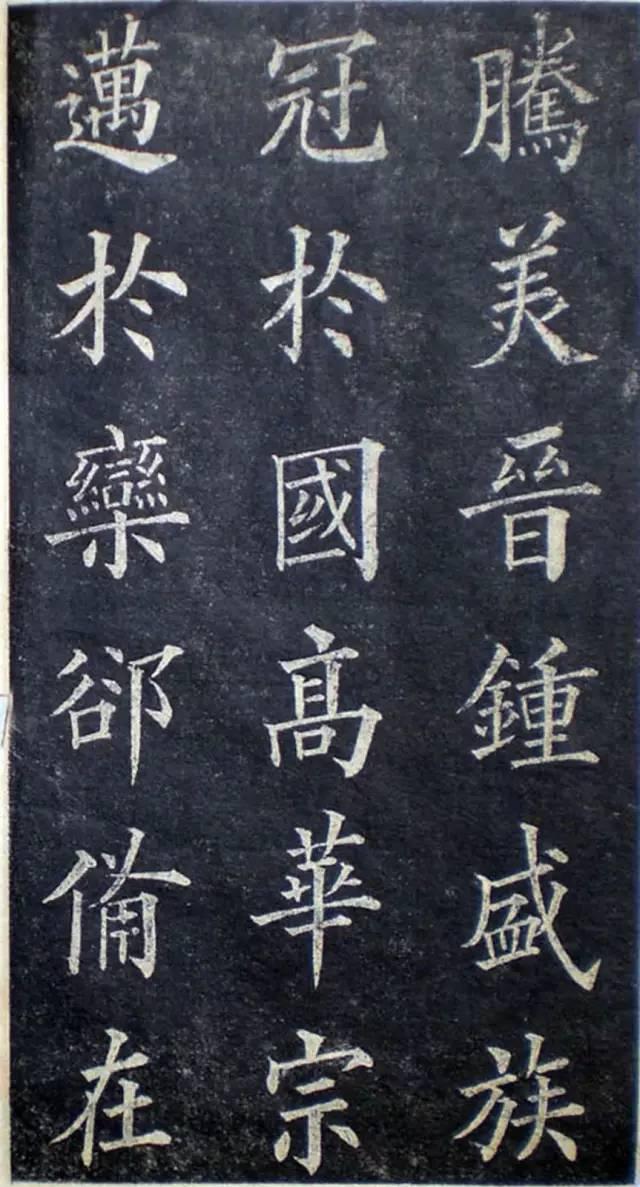 騰美晉鍾盛族
冠於國高華宗
邁於欒郤俻在